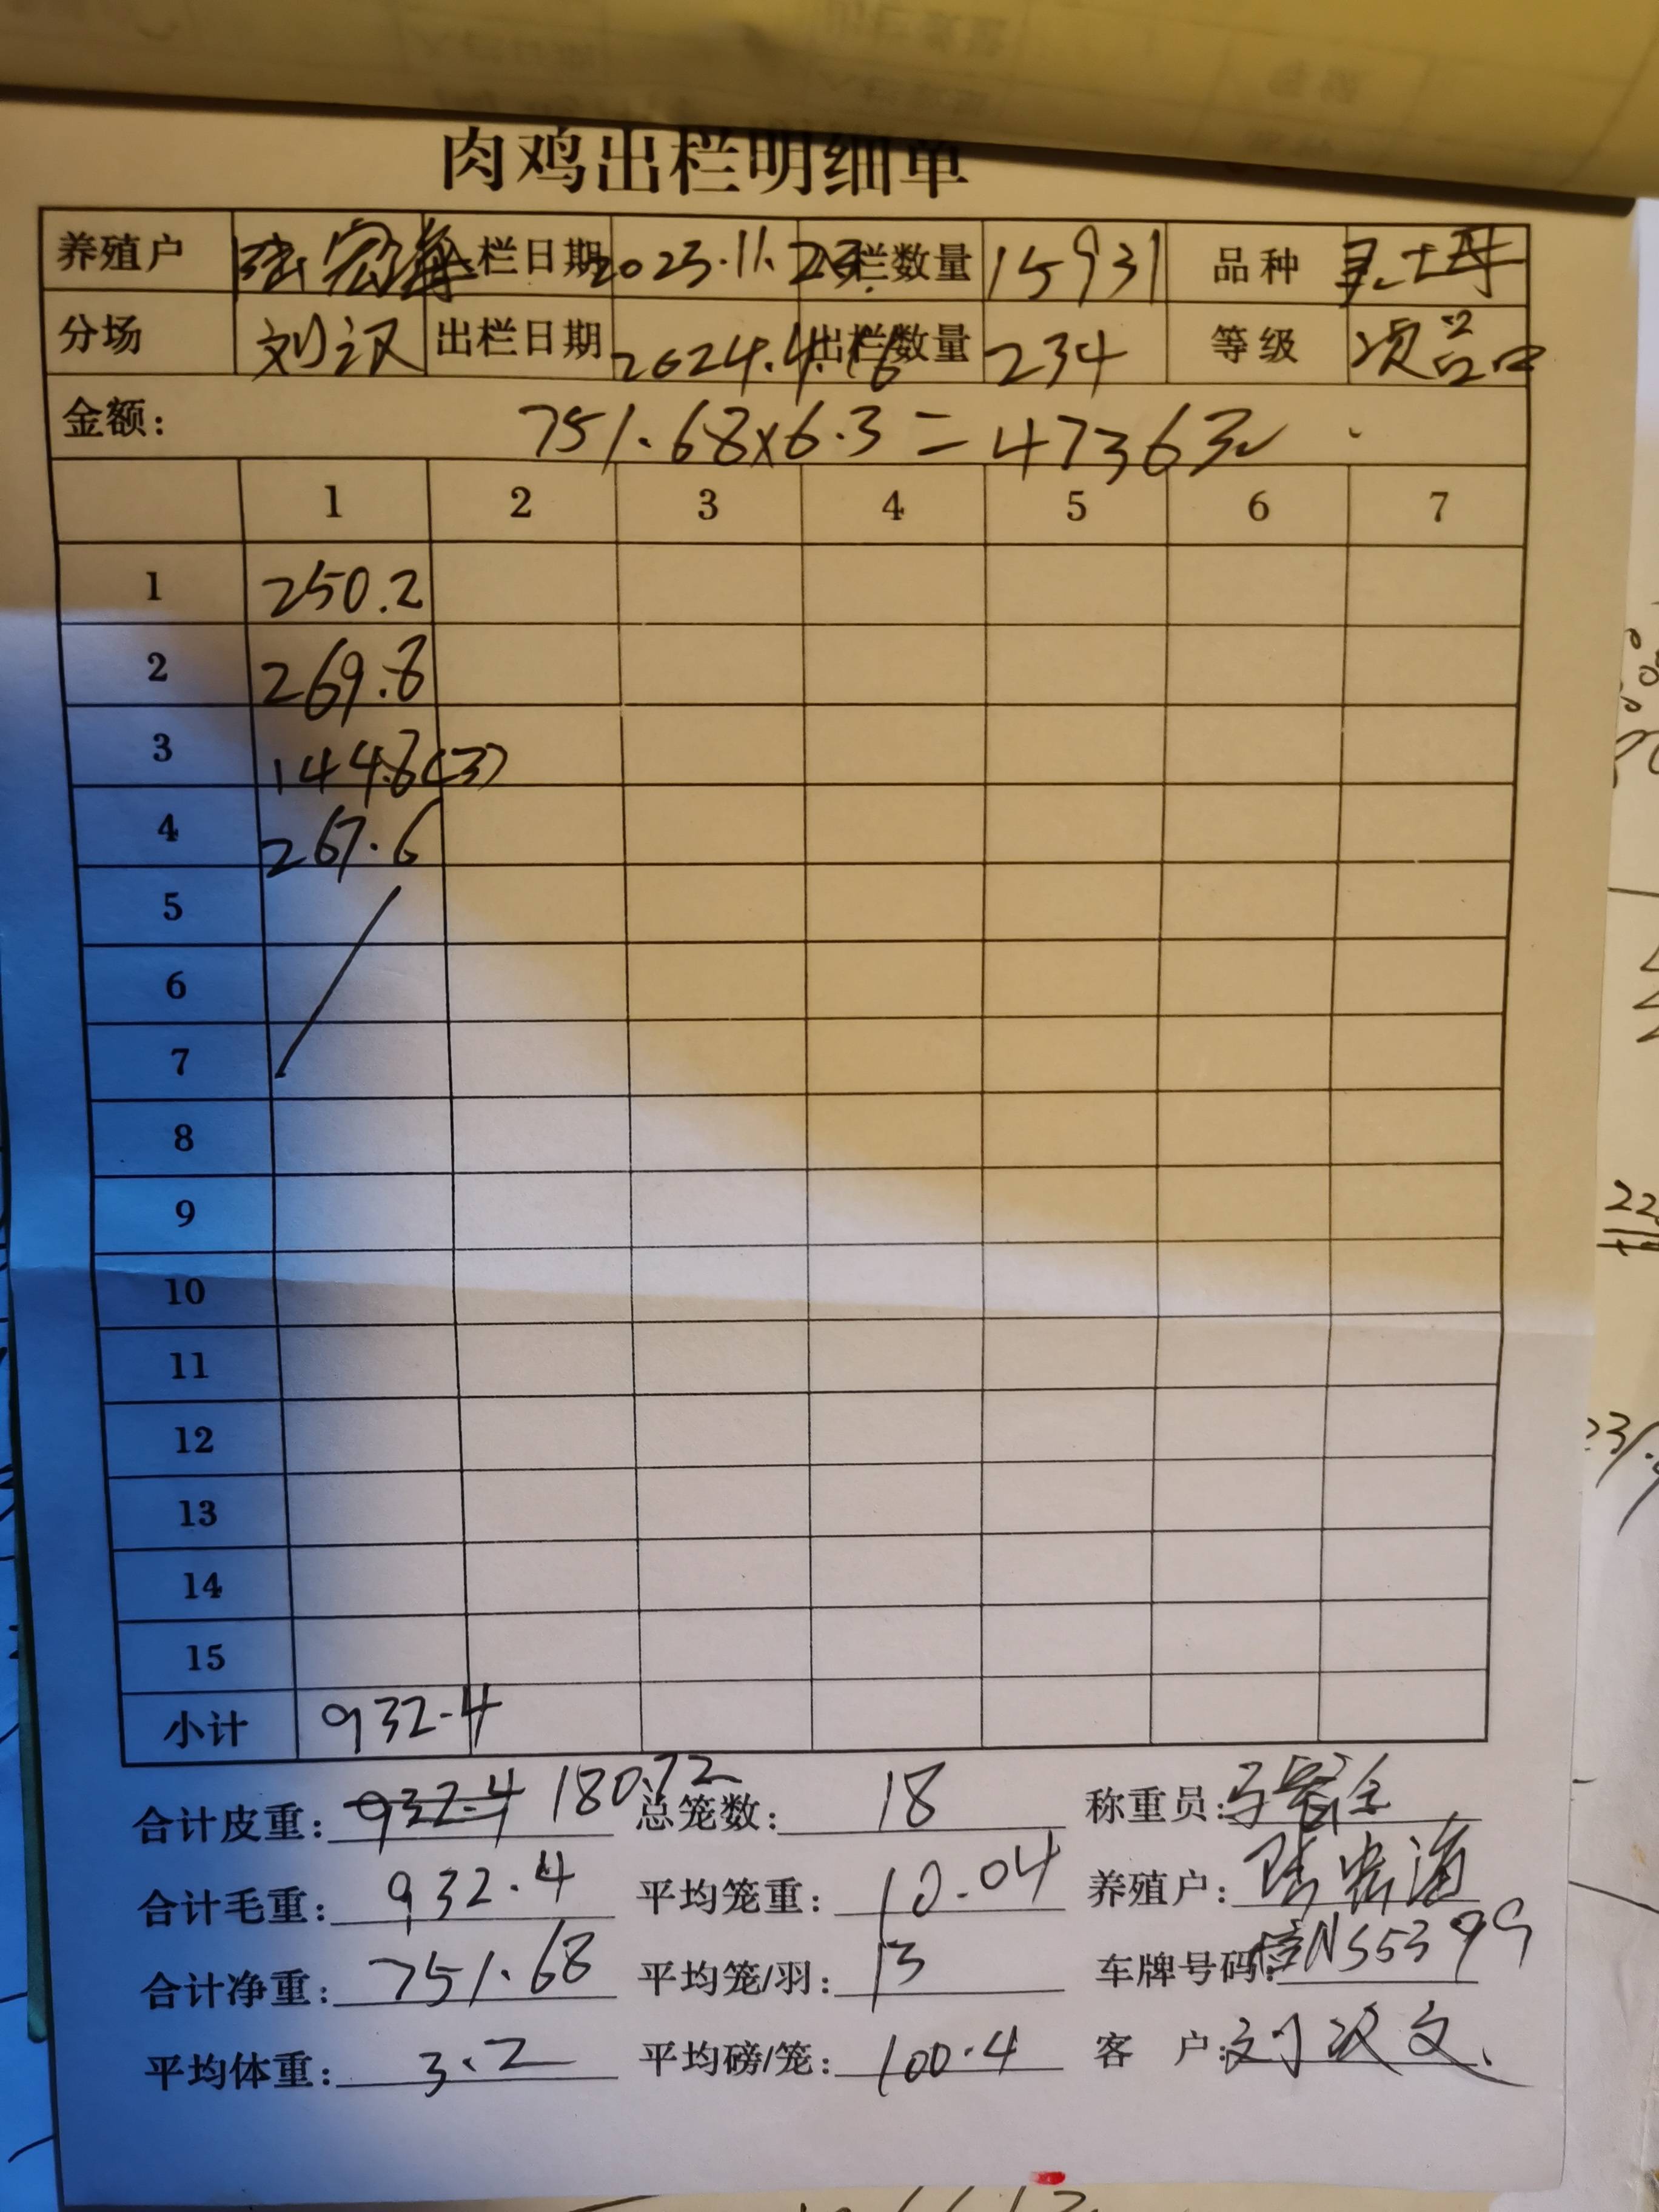 肉鸡出栏明细单
养殖户 陆宏海 入栏日期 2023.11.23 入栏数量 15931 品种 灵土母
分场 刘汉 出栏日期 2024.4.16 出栏数量 234 等级 次品
金额: 751.68×6.3=47363
1 2 3 4 5 6 7
1 250.2
2 269.8
3 144.8(3)
4 267.6
5
6
7
8
9
10
11
12
13
14
15
小计 932.4
合计皮重: 932.4 180.72 总笼数: 18 称重员:
合计毛重: 932.4 平均笼重: 10.04 养殖户: 陆宏海
合计净重: 751.68 平均笼/羽: 13 车牌号码: N55399
平均体重: 3.2 平均磅/笼: 100.4 客 户: 刘汉文